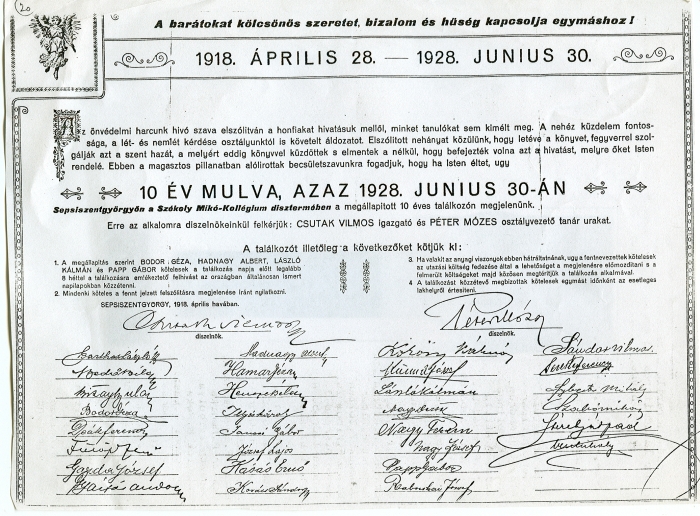 20
A barátokat kölcsönös szeretet, bizalom és hűség kapcsolja egymáshoz!
1918. ÁPRILIS 28. — 1928. JUNIUS 30.
Az önvédelmi harcunk hivó szava elszólitván a honfiakat hivatásuk mellől, minket tanulókat sem kimélt meg. A nehéz küzdelem fontos-
sága, a lét- és nemlét kérdése osztályunktól is követelt áldozatot. Elszólitott nehányat közülünk, hogy letéve a könyvet, fegyverrel szol-
gálják azt a szent hazát, a melyért eddig könyvvel küzdöttek s elmentek a nélkül, hogy befejezték volna azt a hivatást, melyre őket Isten
rendelé. Ebben a magasztos pillanatban alólirottak becsületszavunkra fogadjuk, hogy ha Isten éltet, ugy
10 ÉV MULVA, AZAZ 1928. JUNIUS 30-ÁN
Sepsiszentgyörgyön a Székely Mikó-Kollégium disztermében a megállapitott 10 éves találkozón megjelenünk.
Erre az alkalomra diszelnökeinkül felkérjük: CSUTAK VILMOS igazgató és PÉTER MÓZES osztályvezető tanár urakat.
A találkozót illetőleg a következőket kötjük ki:
1. A megállapitás szerint BODOR GÉZA, HADNAGY ALBERT, LÁSZLÓ
KÁLMÁN és PAPP GÁBOR kötelesek a találkozás napja előtt legalább
8 héttel a találkozásra emlékeztető felhivást az országban általánosan ismert
napilapokban közzétenni.
2. Mindenki köteles a fennt jelzett felszólitásra megjelenése iránt nyilatkozni.
SEPSISZENTGYÖRGY, 1918. április havában.
3. Ha valakit az anyagi viszonyok ebben hátráltatnának, ugy a fentnevezettek kötelesek
az utazási költség fedezése által a lehetőséget a megjelenésre előmozditani s a
felmerült költségeket majd közösen megtéritjük a találkozás alkalmával.
4. A találkozást közzétevő megbizottak kötelesek egymást időnként az esetleges
lakhelyről értesiteni.
Csutak Vilmos
diszelnök.
Péter Mózes
diszelnök.
Bodor Géza
Deák Ferenc
Fülöp Jenő
Gazda József
Hadnagy Albert
Jancsó Gábor
József Lajos
Havas Ernő
Kovács Sándor
László Kálmán
Nagy Dezső
Nagy Ferenc
Nagy József
Papp Gábor
Sándor Vilmos